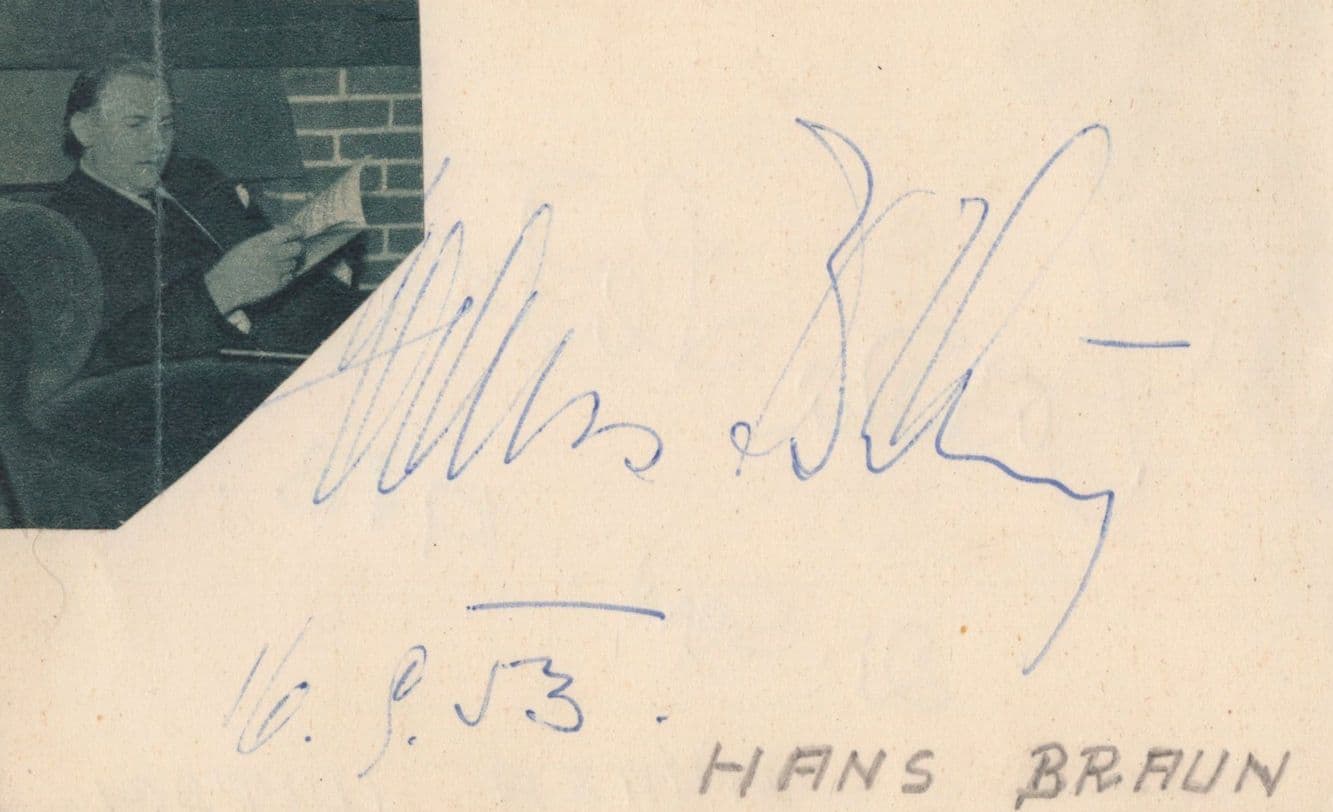 Hans Braun
16. 9. 53.
HANS BRAUN